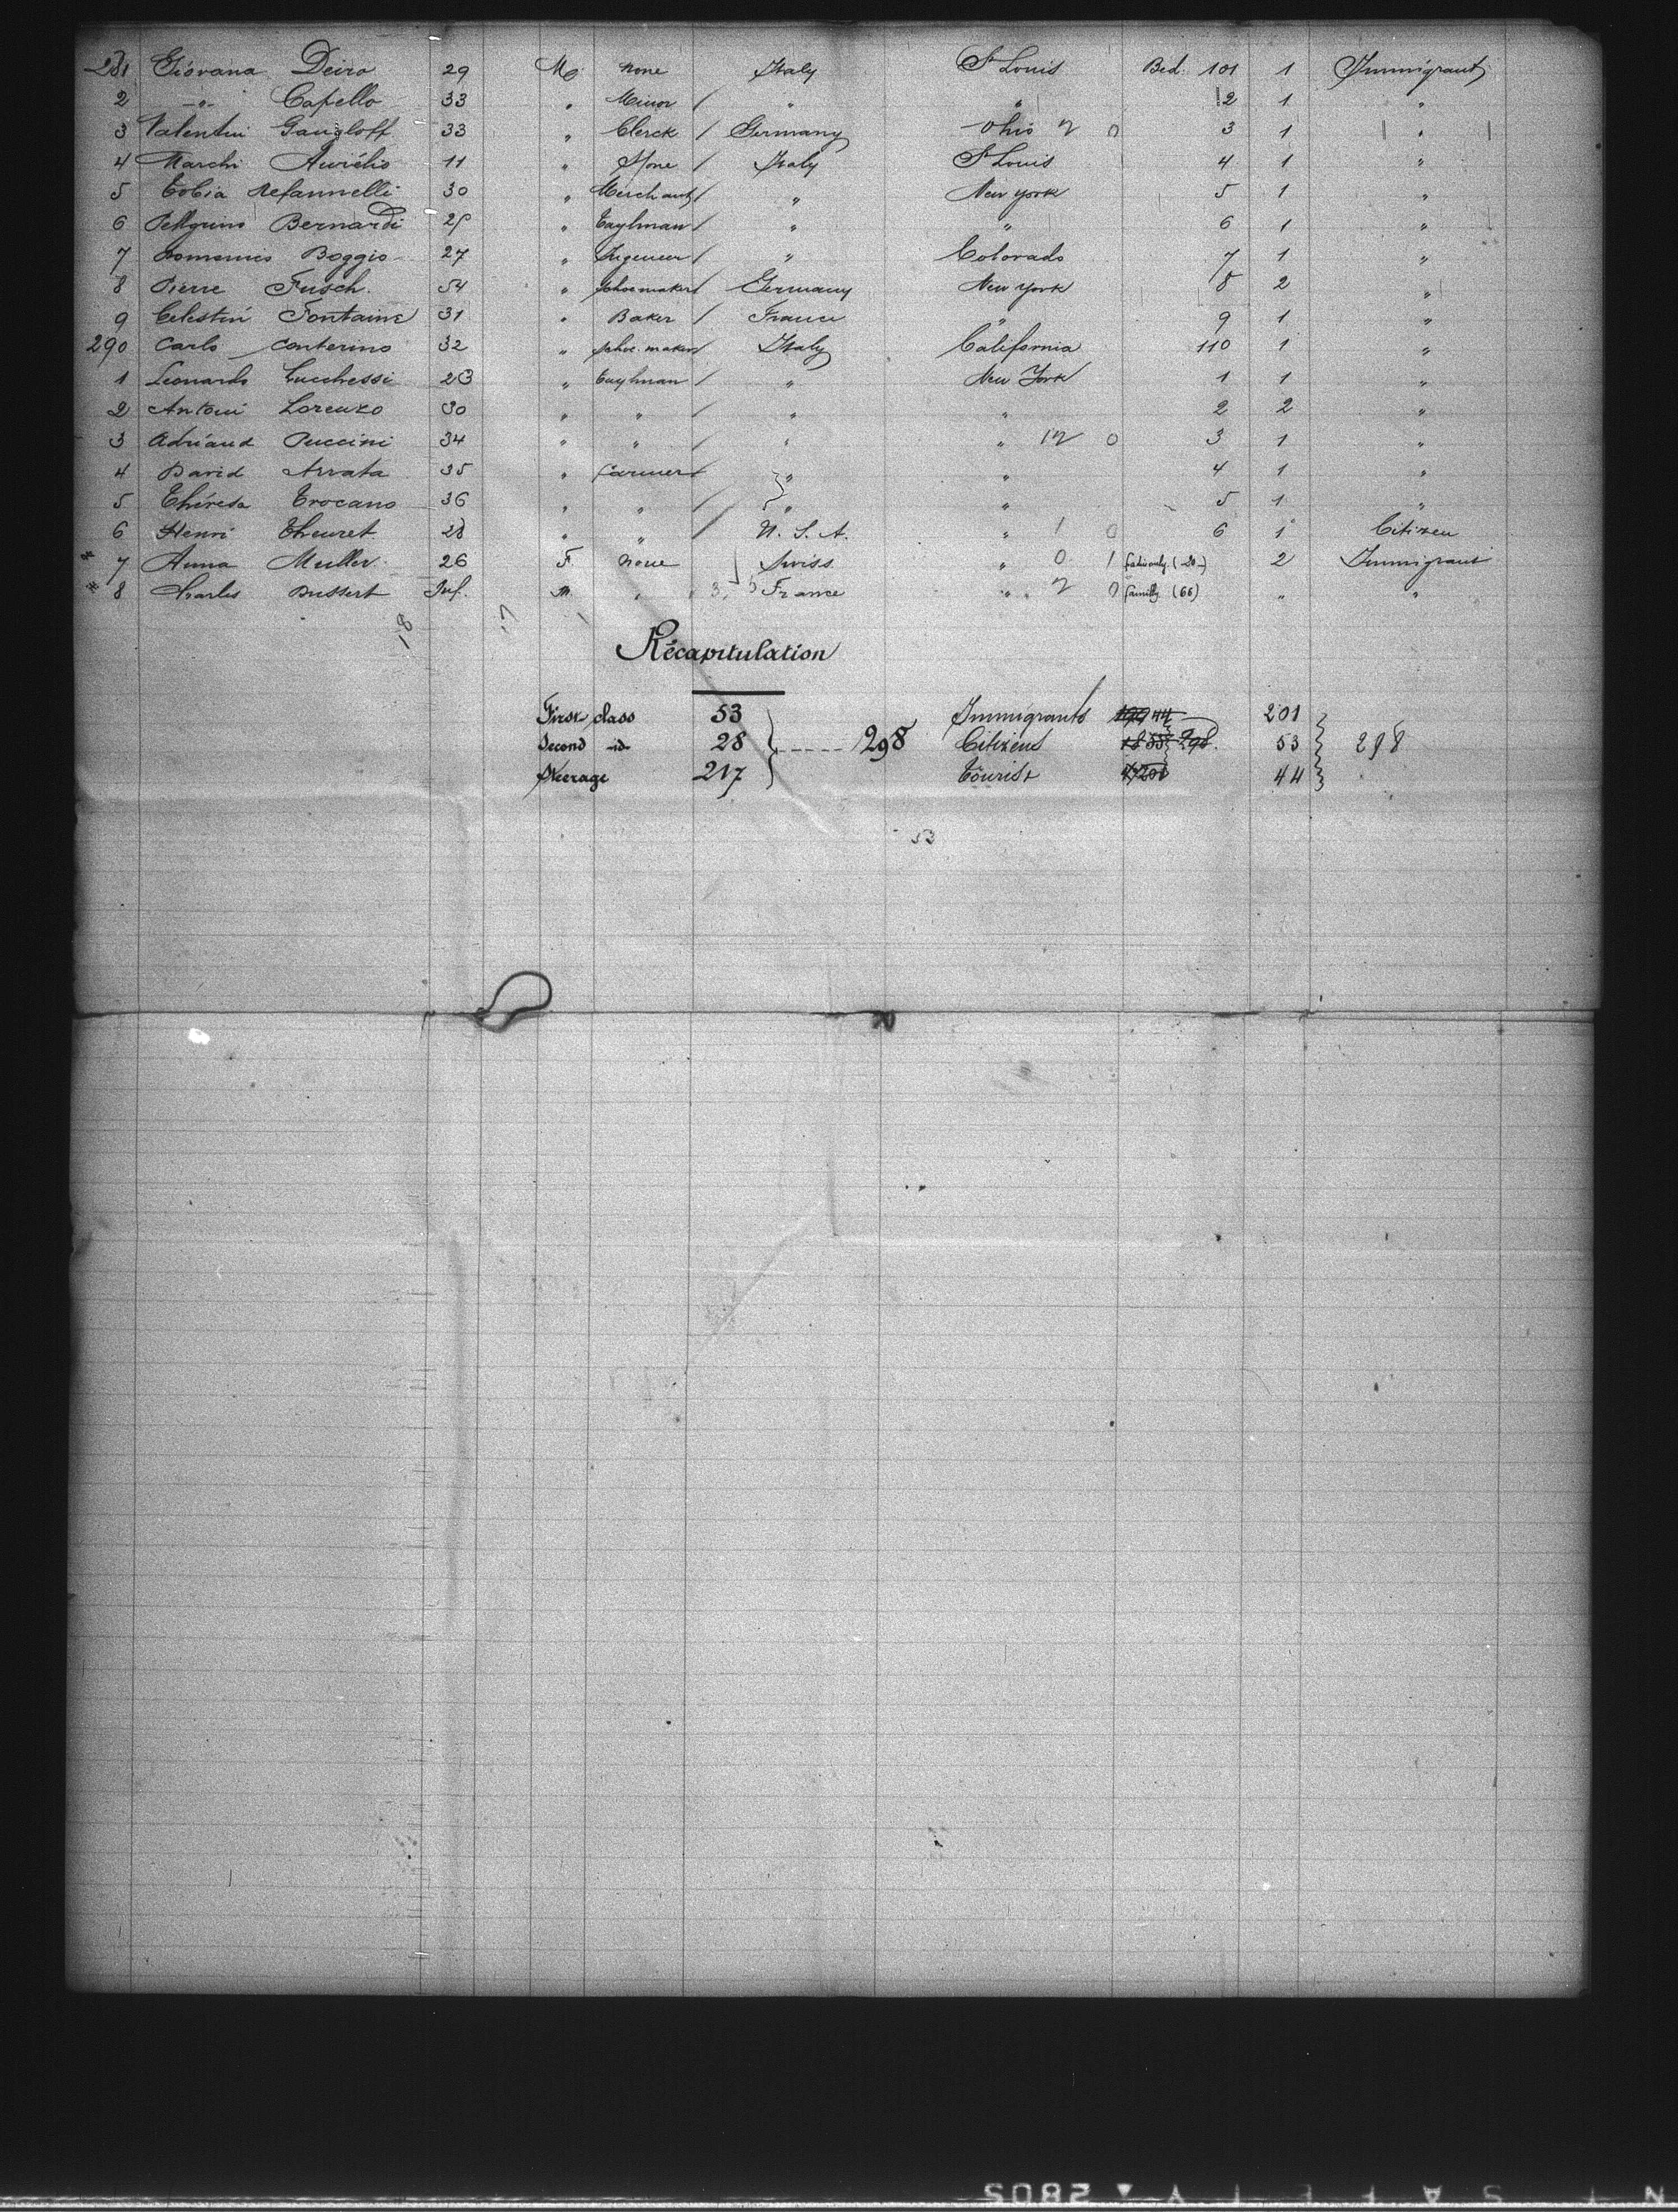 281 Giovana Deiro 29 M. none Italy St Louis Bed. 101 1 Immigrant
2 -"- Capello 33 " Minor / " " 2 1 "
3 Valentin Gangloff 33 " Clerck / Germany Ohio 3 1 "
4 Marchi Aurélio 11 " None / Italy St Louis 4 1 "
5 Tobia 30 " Merchant / " New York 5 1 "
6 Bernardi " / " " 6 1 "
7 Boggio 27 " / " Colorado 7 1 "
8 Pierre Fusch. 54 " Shoemaker / Germany New York 8 2 "
9 Celestin Fontaine 31 " Baker / France " 9 1 "
290 Carlo Conterino 32 " Shoe-maker / Italy California 110 1 "
1 Leonardo Lucchessi 23 " / " New York 1 1 "
2 Antoni Lorenzo 30 " " / " " 2 2 "
3 Adriand Puccini 34 " " / " " 0 3 1 "
4 David Arrata 35 " farmer / " " 4 1 "
5 Théresa Trocano 36 " " / " " 5 1 "
6 Henri Theuret 28 " " / U. S. A. " 1 0 6 1 Citizen
* 7 Anna Muller 26 F. None Swiss " 0 1 2 Immigrant
* 8 Charles Bussert Inf. M. " France " 0 family (66) " "
18
Récapitulation
First class 53 Immigrants 201
Second -id- 28 } ---- 298 Citizens 53 } 298
Steerage 217 Tourist 44
53